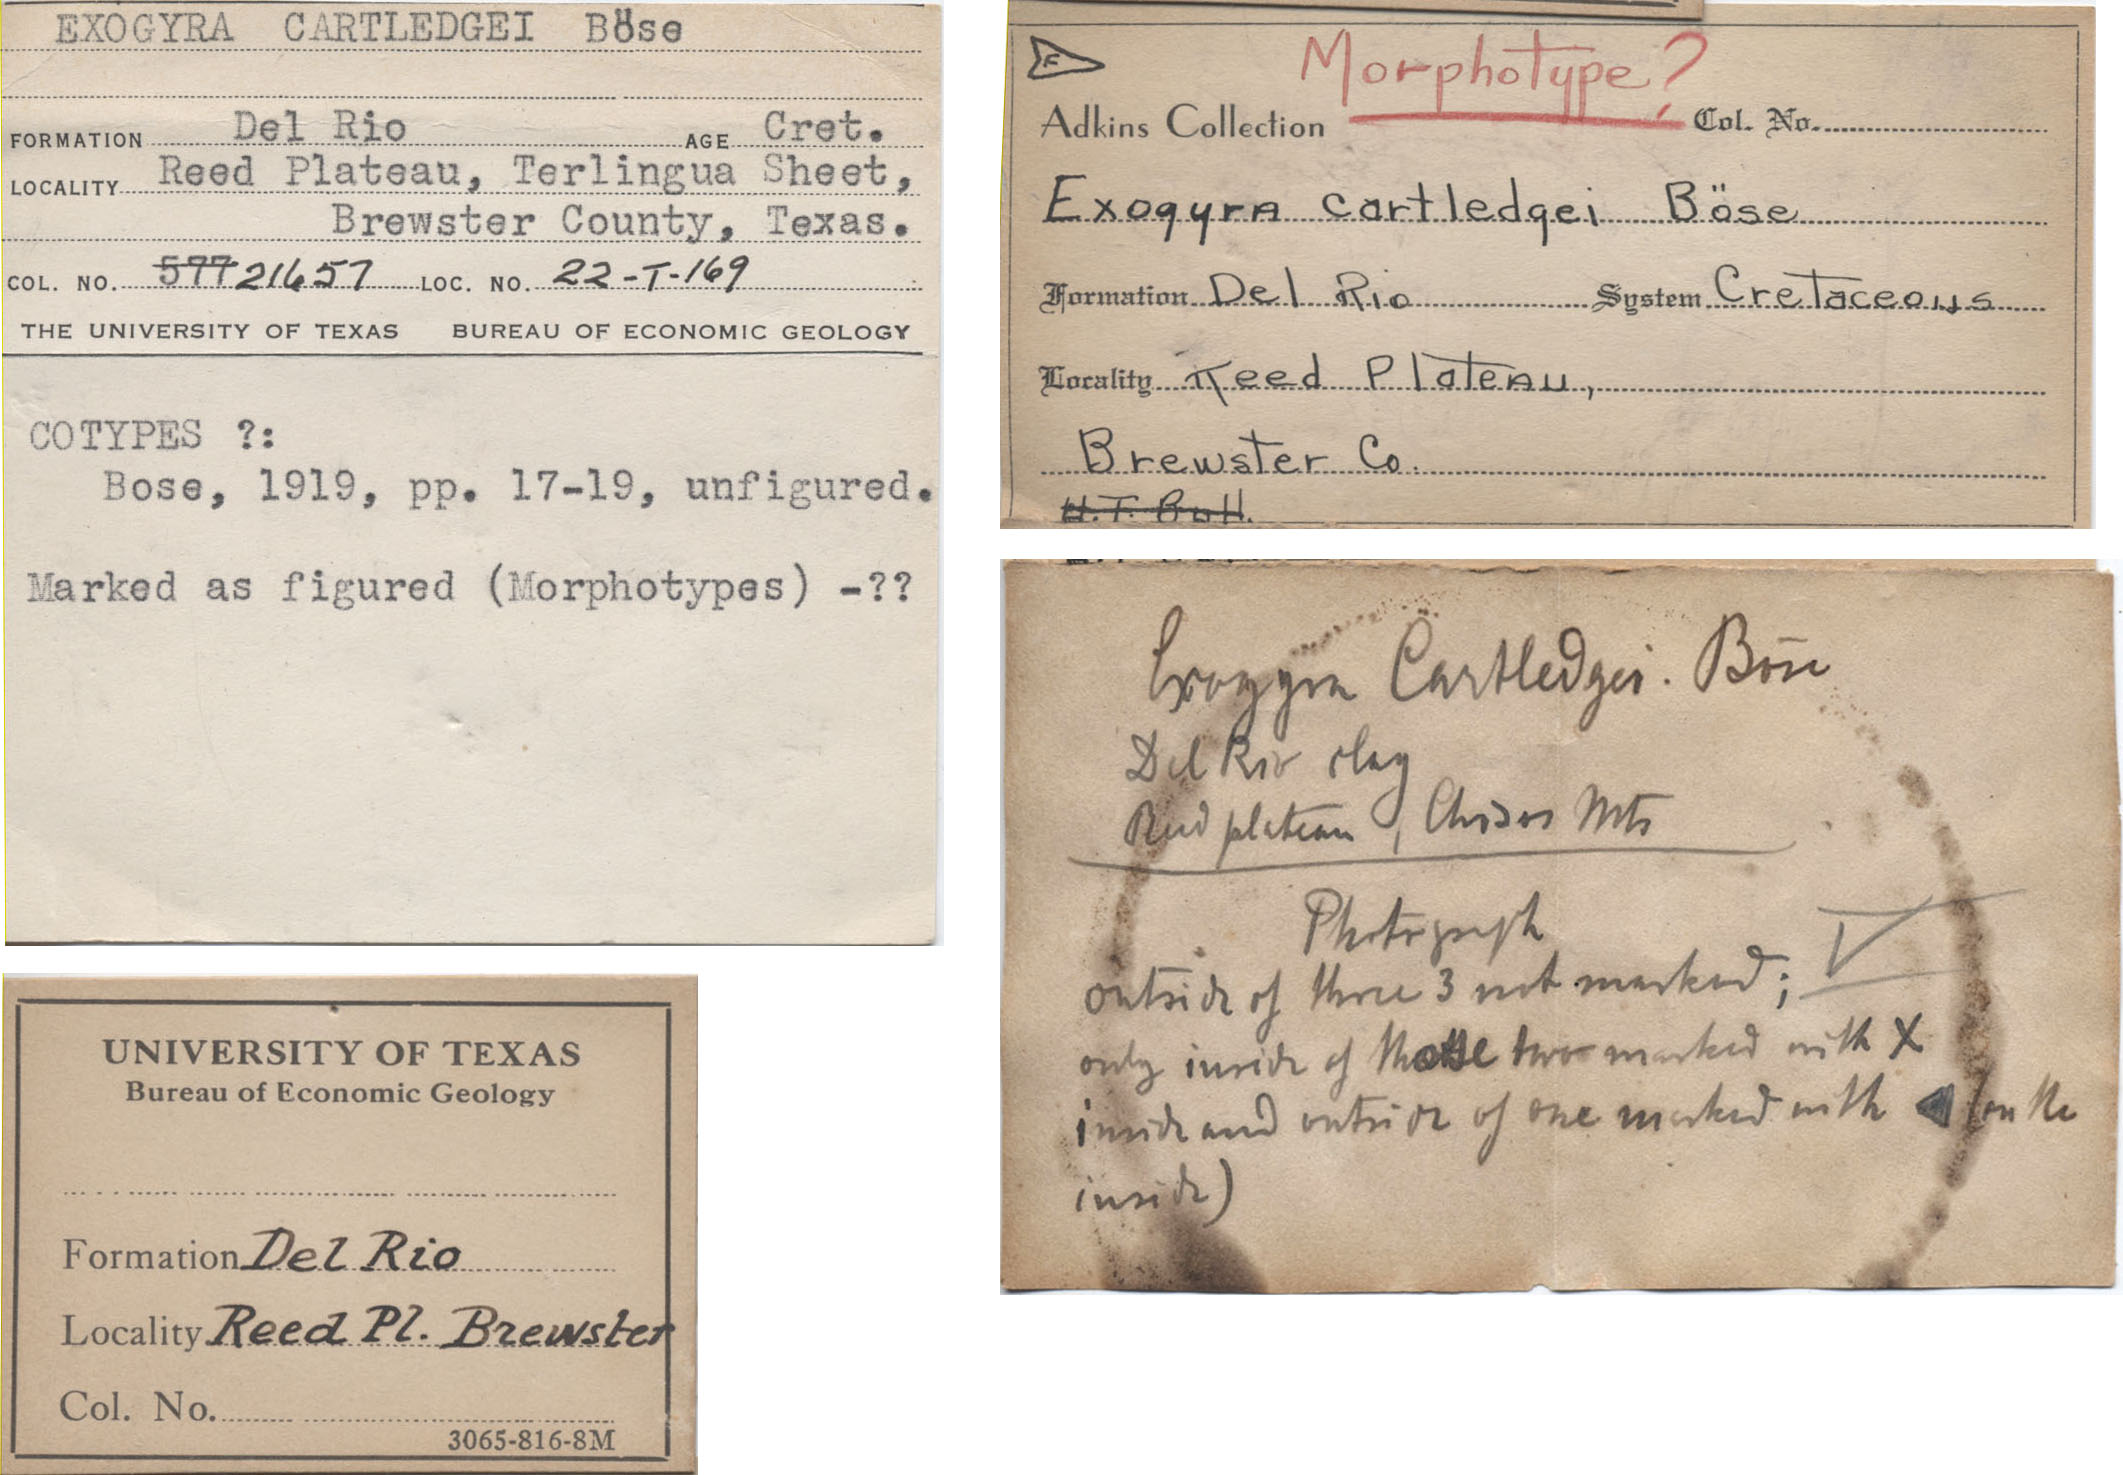 EXOGYRA CARTLEDGEI Böse
FORMATION Del Rio AGE Cret.
LOCALITY Reed Plateau, Terlingua Sheet,
Brewster County, Texas.
COL. NO. 577 21657 LOC. NO. 22-T-169
THE UNIVERSITY OF TEXAS BUREAU OF ECONOMIC GEOLOGY
COTYPES ?:
Bose, 1919, pp. 17-19, unfigured.
Marked as figured (Morphotypes) -??
UNIVERSITY OF TEXAS
Bureau of Economic Geology
Formation Del Rio
Locality Reed Pl. Brewster
Col. No.
3065-816-8M
F
Morphotype?
Adkins Collection Col. No.
Exogyra cartledgei Böse
Formation Del Rio System Cretaceous
Locality Reed Plateau,
Brewster Co.
Exogyra Cartledgei. Böse
Del Rio clay
Reed plateau, Chisos Mts
Photograph
outside of three 3 not marked;
only inside of those two marked with X
inside and outside of one marked with (on the
inside)